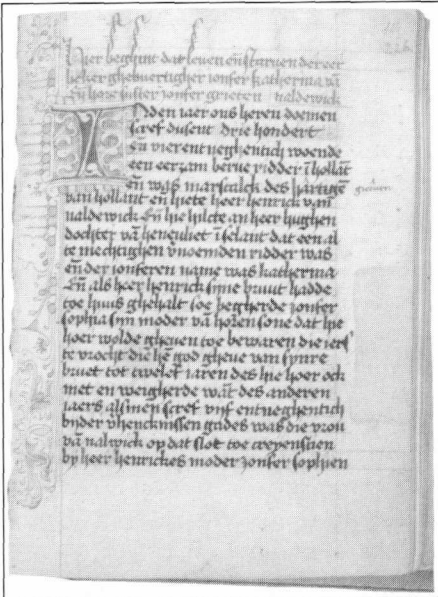 Hier beghint dat leven eñ starven der eer
eñ hore suster jonfer grieten naldewick
INden iaer ons heren doemen
scref dusent drie hondert
Eñ vier ent neghentich woende
een eerzam berue ridder ī hollāt
eñ was marscalck des hartigē
van hollant eñ hiete heer henrick van
naldewick Eñ hie hilcte an heer hughen
dochter vā heneuliet ī selant dat een al
te mechtighen vernoemden ridder was
eñ der ionferen name was katherina
Eñ als heer henrick sijne bruut hadde
toe huus ghehalt soe begherde jonfer
sophia sijn moder vā horen sone dat hie
hoer wolde gheuen toe bewaren die ierste
te vrocht die hē god gheue van synre
bruet tot twelef iaren des hie hoer ock
niet en weigherde wāt des anderen
iaers alsmen scref vijf ent neghentich
bijder vhencknissen gades was die vrou
vā nalwick op dat slot toe
by heer henrickes moder jonfer sophien